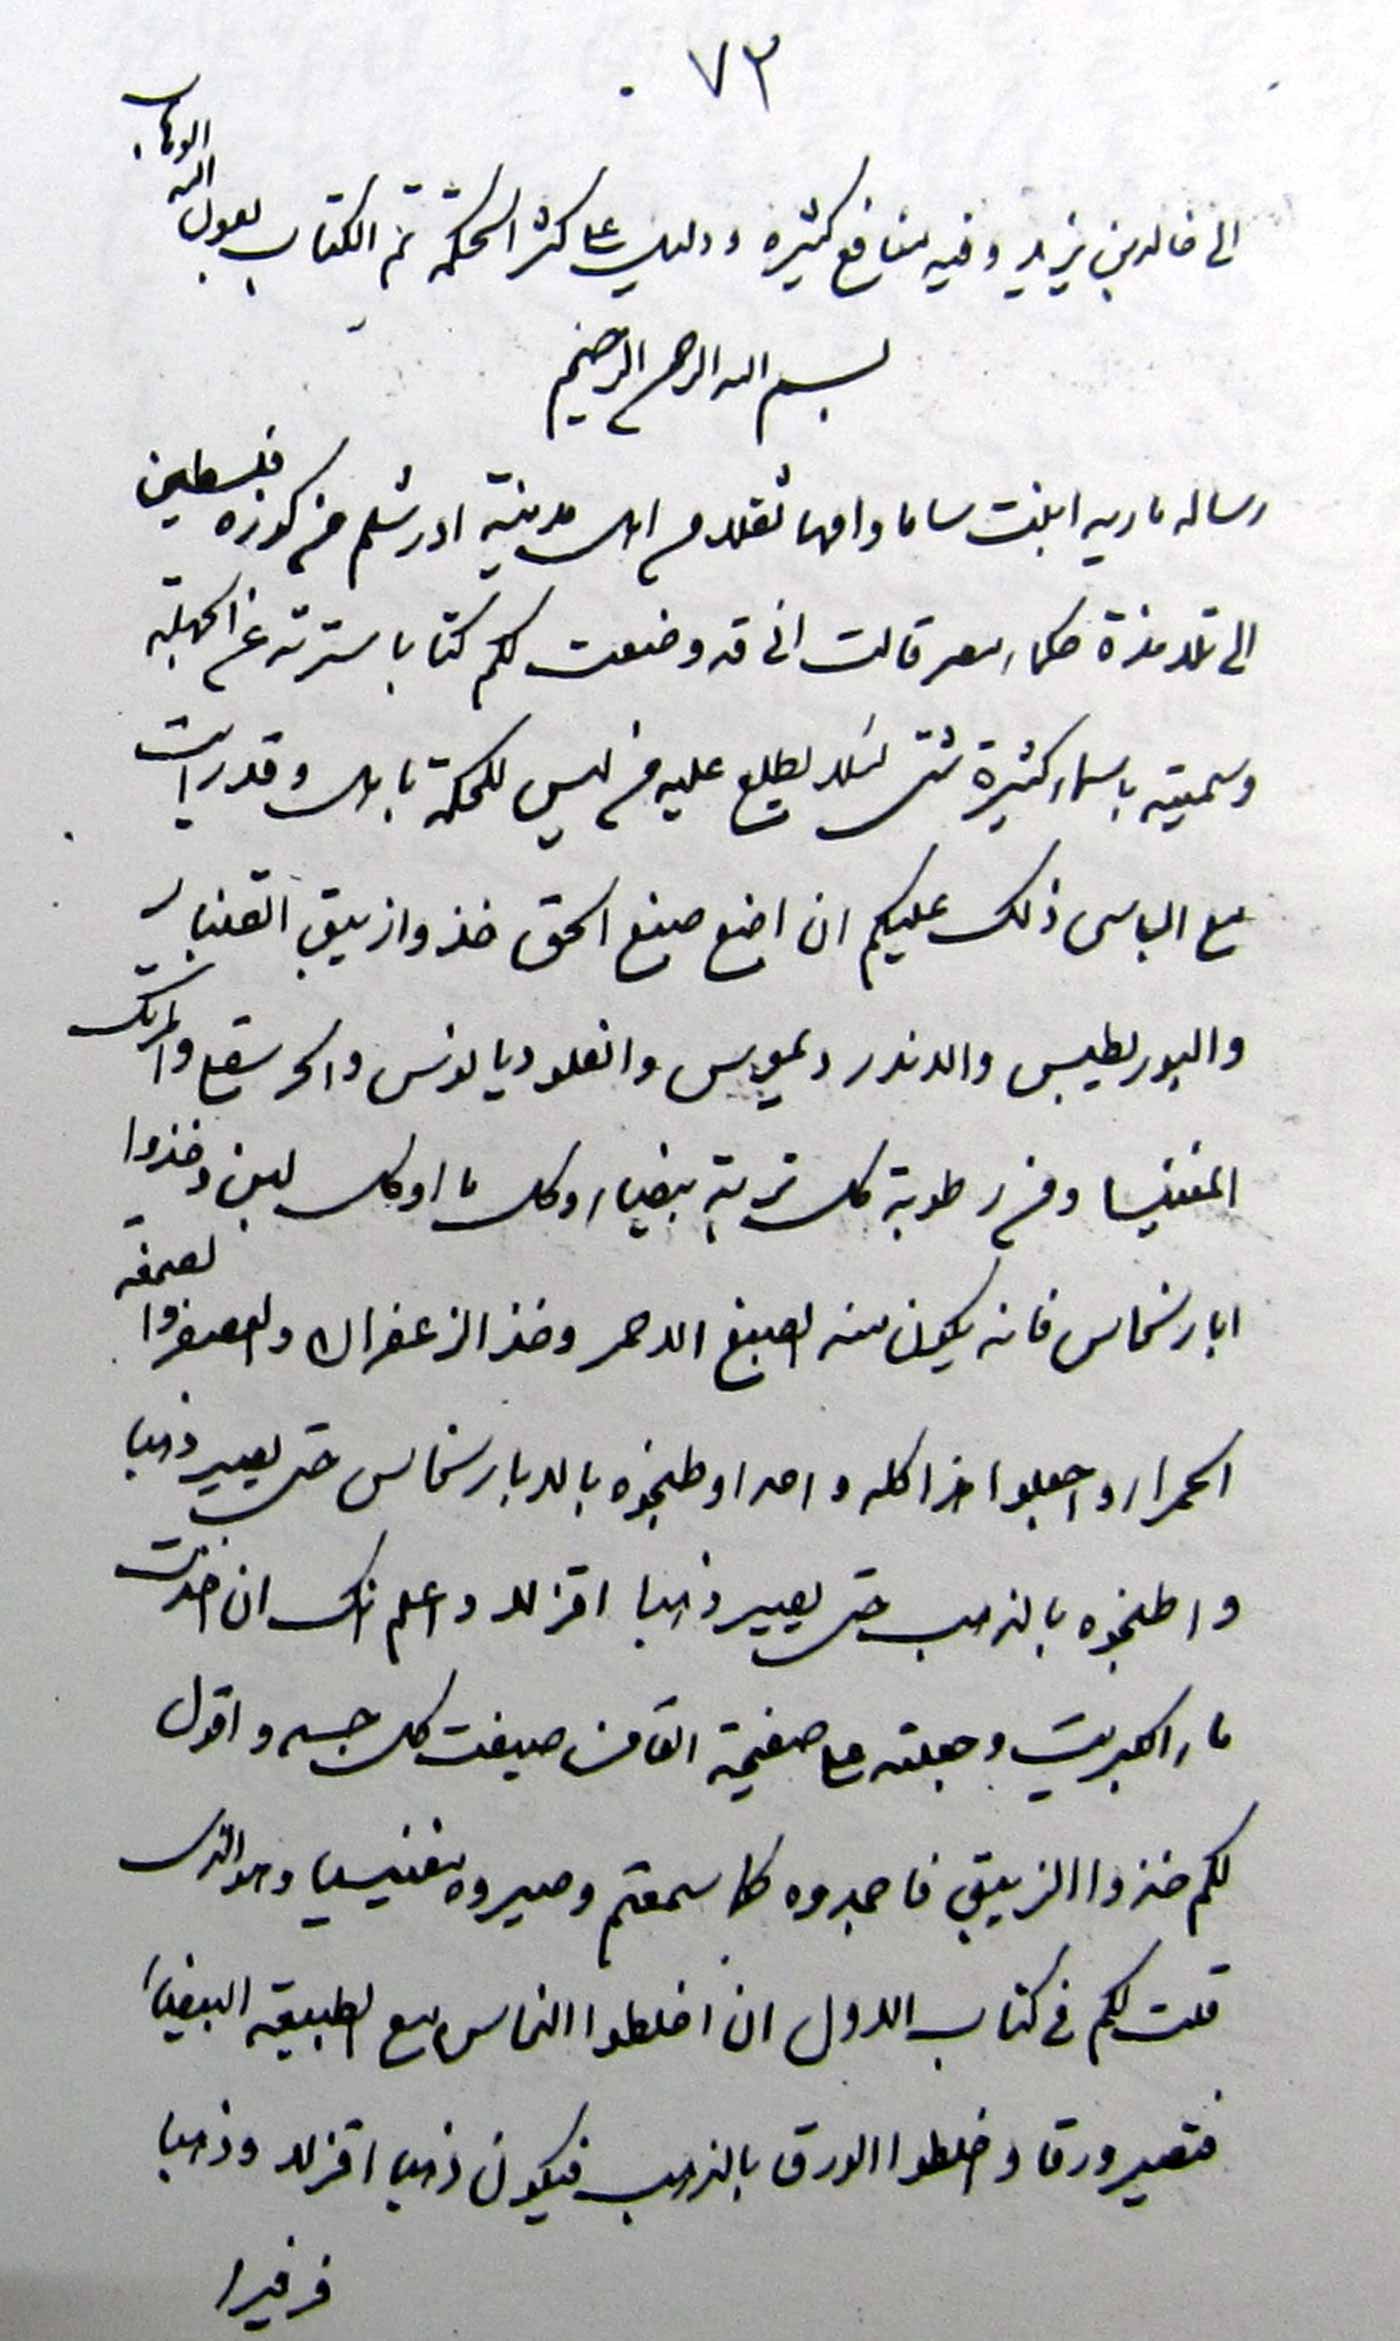 ٧٣
الى خالد بن يزيد وفيه منافع كثيره ودليل على كثرة الحكمة تم الكتاب بعون الله الوهاب
بسم الله الرحمن الرحيم
رساله ماريه ابنت ساما وامها من اهل مدينة اورشلم من كوره فلسطين
الى تلامذة حكماء مصر قالت انى قد وضعت لكم كتابا سترته عن الجهلة
وسميته باسماء كثيرة شتى لئلا يطلع عليه من ليس للحكمة باهل وقد رايت
مع الباسى ذلك عليكم ان اضع صنع الحق خذوا زيبق القنبار
والبوريطيس والاندر دعويس والقلوديالونس والمرتك
المغنيسا ومن رطوبة كل تربة بيضاء وكل ماء وكل لبن وخذوا
ابار نحاس فانه يكون منه الصبغ الاحمر وخذ الزعفران والعصفر والصمغه
الحمراء واجعلوا اخراكله واحدا وطبخوه بالابار نحاس حتى يصير ذهبا
واطبخوه بالذهب حتى يصير ذهبا اقزلا واعلم انك ان اخذت
ماء الكبريت وجعلته على صفيحة القامن صبغت كل جسم واقول
لكم خذوا الزيبق فاجمدوه كما سمعتم وصيروه مغنيسيا وهو الذى
قلت لكم فى كتاب الاول ان اخلطوا النحاس مع الطبيعة البيضاء
فتصير ورقا واخلطوا الورق بالذهب فيكون ذهبا اقزلا وذهبا
فرفيرا